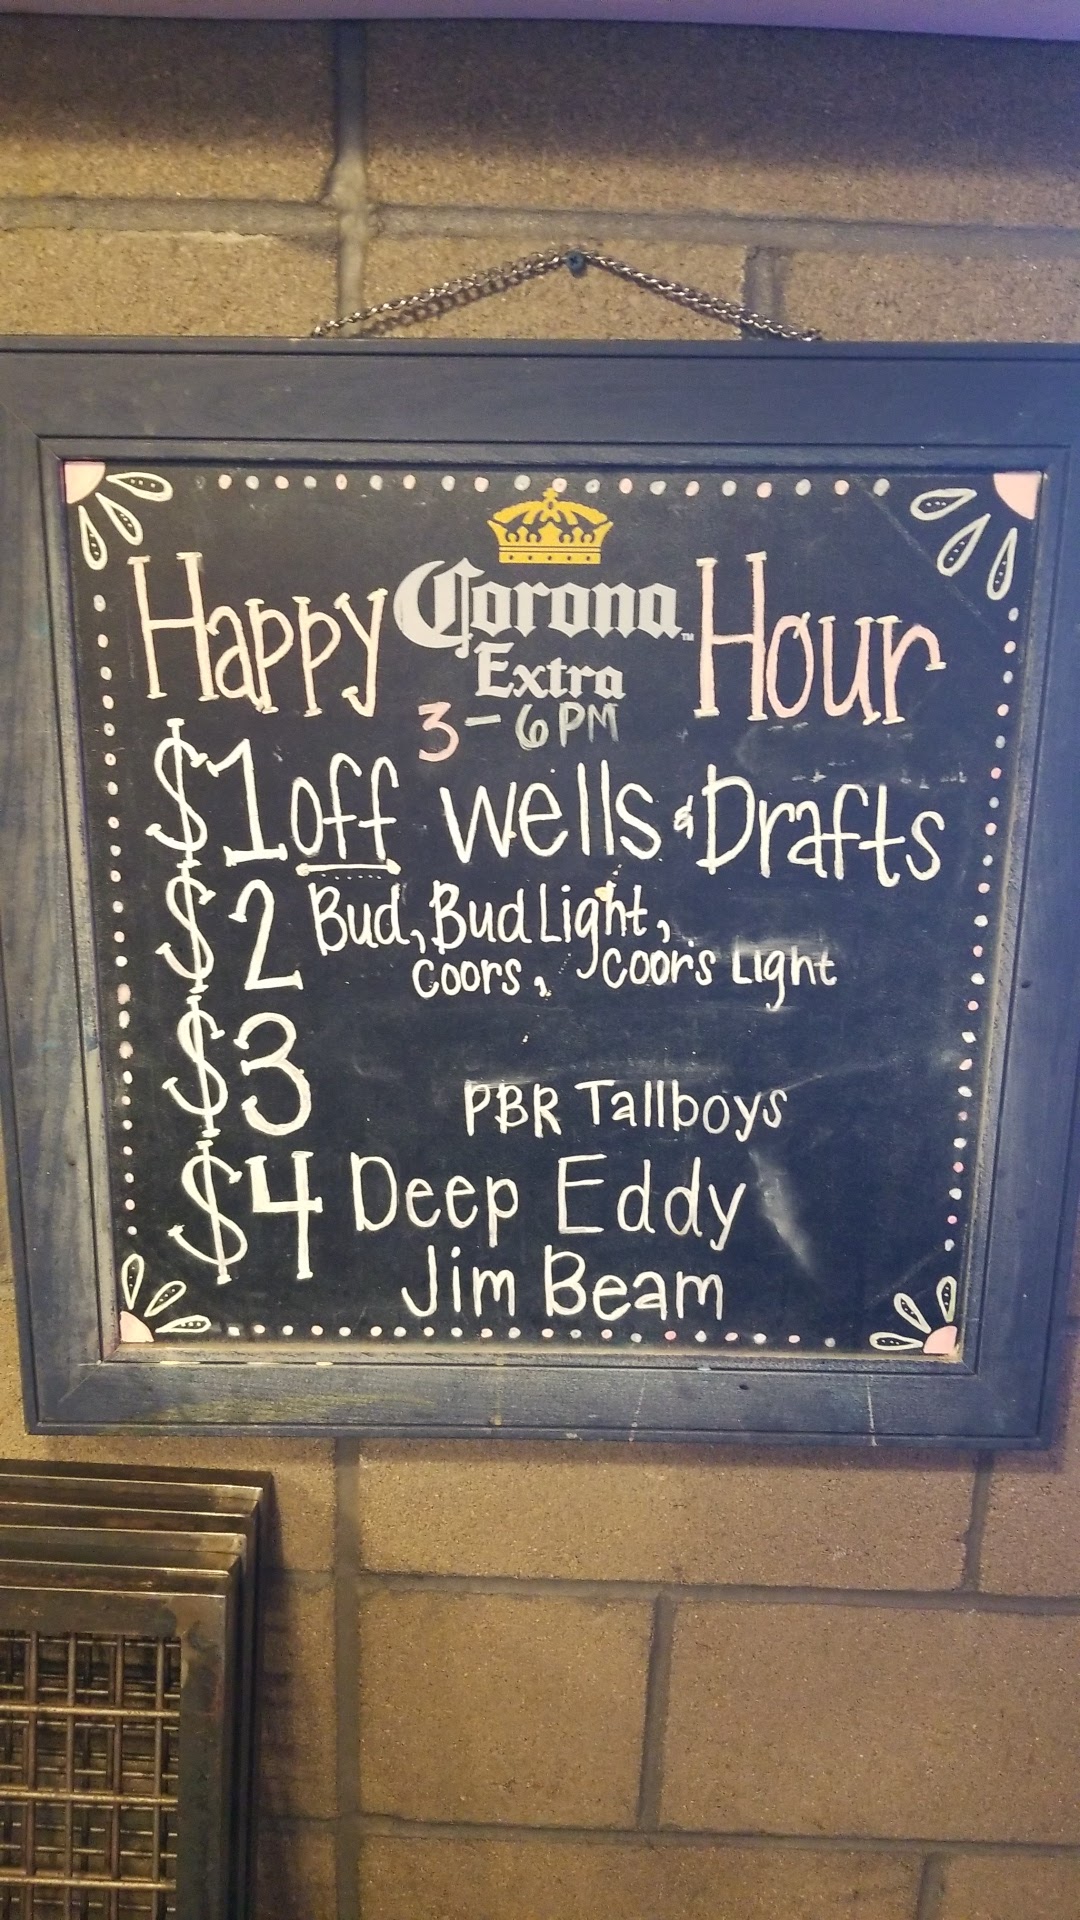 Happy Corona™ Hour
Extra
3-6PM
$1 off wells & Drafts
$2 Bud, Bud Light,
coors, coors Light
$3 PBR Tallboys
$4 Deep Eddy
Jim Beam